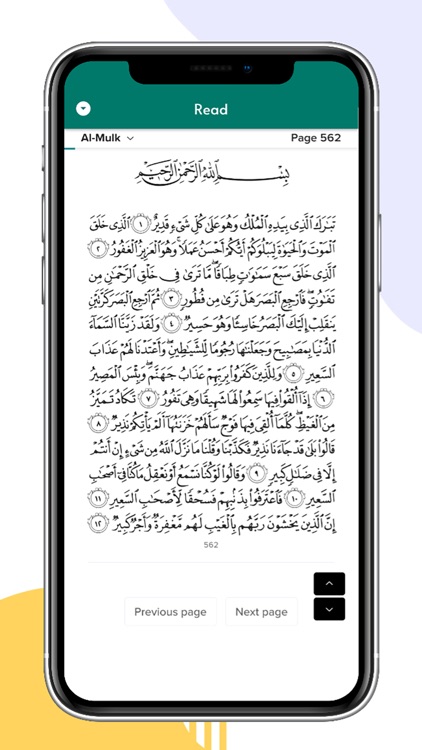 Read
Al-Mulk
Page 562
بِسْمِ اللَّهِ الرَّحْمَٰنِ الرَّحِيمِ
تَبَارَكَ الَّذِي بِيَدِهِ الْمُلْكُ وَهُوَ عَلَىٰ كُلِّ شَيْءٍ قَدِيرٌ ١ الَّذِي خَلَقَ
الْمَوْتَ وَالْحَيَوٰةَ لِيَبْلُوَكُمْ أَيُّكُمْ أَحْسَنُ عَمَلًا وَهُوَ الْعَزِيزُ الْغَفُورُ ٢
الَّذِي خَلَقَ سَبْعَ سَمَاوَاتٍ طِبَاقًا مَّا تَرَىٰ فِي خَلْقِ الرَّحْمَٰنِ مِن
تَفَاوُتٍ فَارْجِعِ الْبَصَرَ هَلْ تَرَىٰ مِن فُطُورٍ ٣ ثُمَّ ارْجِعِ الْبَصَرَ كَرَّتَيْنِ
يَنقَلِبْ إِلَيْكَ الْبَصَرُ خَاسِئًا وَهُوَ حَسِيرٌ ٤ وَلَقَدْ زَيَّنَّا السَّمَاءَ
الدُّنْيَا بِمَصَابِيحَ وَجَعَلْنَاهَا رُجُومًا لِّلشَّيَاطِينِ وَأَعْتَدْنَا لَهُمْ عَذَابَ
السَّعِيرِ ٥ وَلِلَّذِينَ كَفَرُوا بِرَبِّهِمْ عَذَابُ جَهَنَّمَ وَبِئْسَ الْمَصِيرُ
٦ إِذَا أُلْقُوا فِيهَا سَمِعُوا لَهَا شَهِيقًا وَهِيَ تَفُورُ ٧ تَكَادُ تَمَيَّزُ
مِنَ الْغَيْظِ كُلَّمَا أُلْقِيَ فِيهَا فَوْجٌ سَأَلَهُمْ خَزَنَتُهَا أَلَمْ يَأْتِكُمْ نَذِيرٌ ٨
قَالُوا بَلَىٰ قَدْ جَاءَنَا نَذِيرٌ فَكَذَّبْنَا وَقُلْنَا مَا نَزَّلَ اللَّهُ مِن شَيْءٍ إِنْ أَنتُمْ
إِلَّا فِي ضَلَالٍ كَبِيرٍ ٩ وَقَالُوا لَوْ كُنَّا نَسْمَعُ أَوْ نَعْقِلُ مَا كُنَّا فِي أَصْحَابِ
السَّعِيرِ ١٠ فَاعْتَرَفُوا بِذَنبِهِمْ فَسُحْقًا لِّأَصْحَابِ السَّعِيرِ ١١
إِنَّ الَّذِينَ يَخْشَوْنَ رَبَّهُم بِالْغَيْبِ لَهُم مَّغْفِرَةٌ وَأَجْرٌ كَبِيرٌ ١٢
562
Previous page
Next page